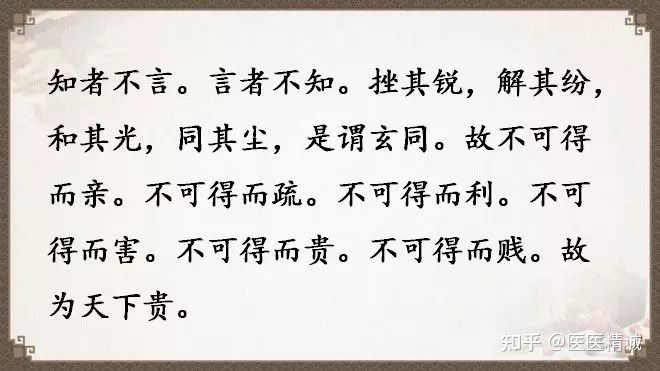 知者不言。言者不知。挫其锐，解其纷，
和其光，同其尘，是谓玄同。故不可得
而亲。不可得而疏。不可得而利。不可
得而害。不可得而贵。不可得而贱。故
为天下贵。
知乎 @医医精诚